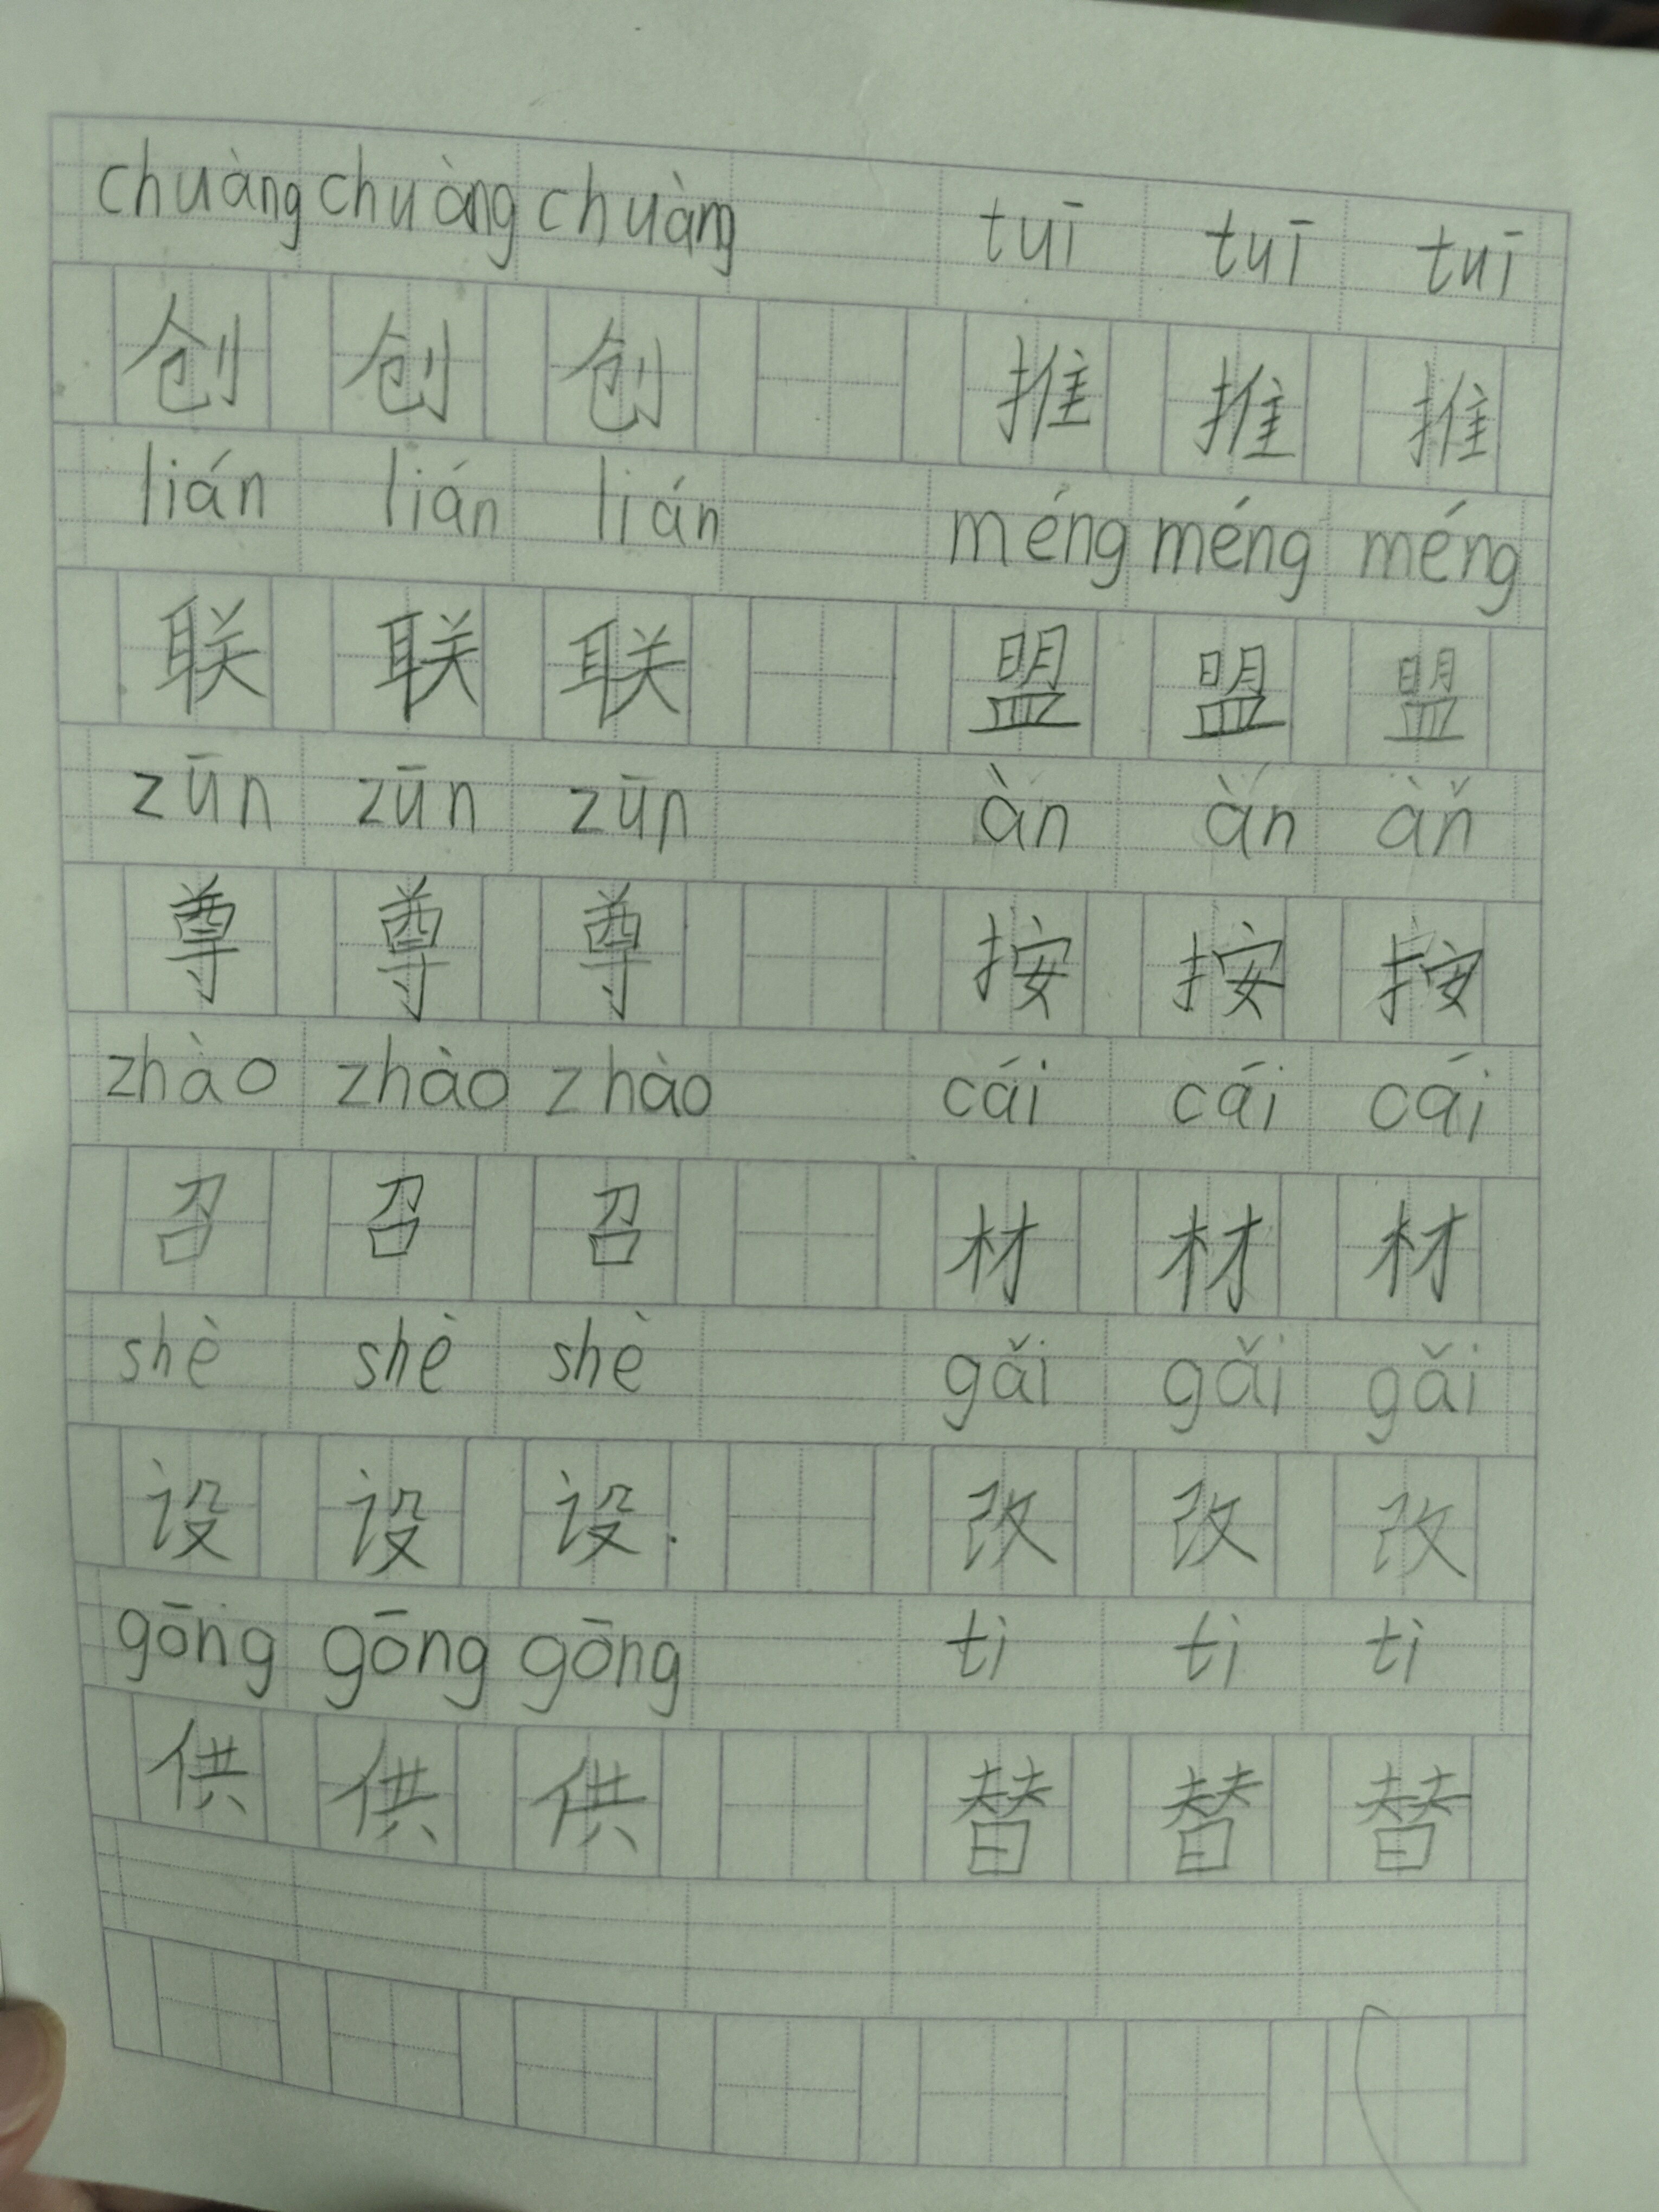 chuàng chuàng chuàng tuī tuī tuī
创 创 创 推 推 推
lián lián lián méng méng méng
联 联 联 盟 盟 盟
zūn zūn zūn àn àn àn
尊 尊 尊 按 按 按
zhào zhào zhào cái cái cái
召 召 召 材 材 材
shè shè shè gǎi gǎi gǎi
设 设 设. 改 改 改
gōng gōng gōng tì tì tì
供 供 供 替 替 替